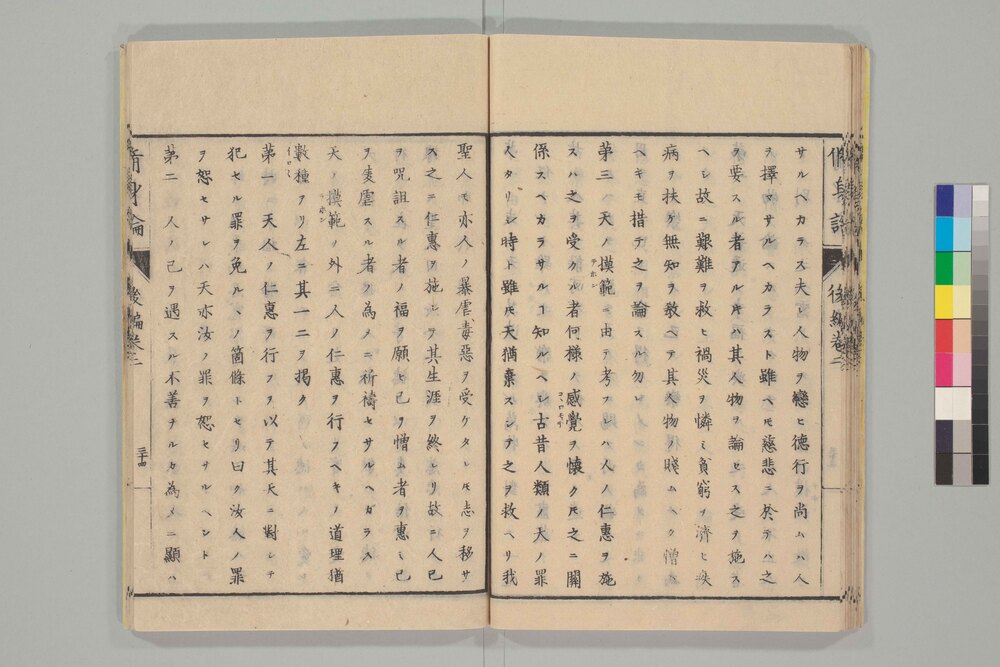 サルヘカラス夫レ人物ヲ戀ヒ德行ヲ尚ムハ人
ヲ擇マサルヘカラスト雖ヘㇳモ慈悲ニ於テハ之
ヲ要スル者アルㇳキハ其人物ヲ論セス之ヲ施ス
ヘシ故ニ艱難ヲ救ヒ禍災ヲ憐ミ貧窮ヲ濟ヒ疾
病ヲ扶ケ無知ヲ敎ヘテ其人物ノ賤ムヘク憎ム
ヘキモ措テ之ヲ論スル勿レ
第三 天ノ摸範ニ由テ考フレハ人ノ仁惠ヲ施
テホン
スハ之ヲ受クル者何樣ノ感覺ヲ懷クㇳモ之ニ關
係スヘカラサルヿ知ルヘシ古昔人類ノ天ノ罪
人タリシ時ト雖ㇳモ天猶棄スシテ之ヲ救ヘリ我
聖人モ亦人ノ暴虐毒惡ヲ受クタレㇳモ志ヲ移サ
ス之ニ仁惠ヲ施シテ其生涯ヲ終レリ故ニ人己
ヲ呪詛スル者ノ福ヲ願ヒ己ヲ憎ム者ヲ惠ミ己
ヲ凌虐スル者ノ為メニ祈禱セサルヘカラス
天ノ摸範ノ外ニ人ノ仁惠ヲ行フヘキノ道理猶
數種アリ左ニ其一二ヲ揭ク
第一 天人ノ仁惠ヲ行フヲ以テ其天ニ對シテ
犯セル罪ヲ免ルヽノ箇條トセリ曰ク汝人ノ罪
ヲ恕セサレハ天亦汝ノ罪ヲ恕セサルヘシト
第二 人ノ己ヲ遇スル不善ナルカ為メニ顯ハ
後編卷之二
三十四